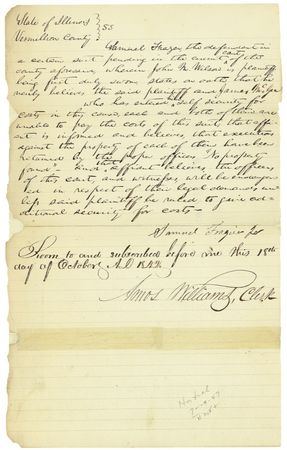 State of Illinois
Vermillion County } SS
Samuel Frazier the defendant in
a certain suit pending in the circuit court of the
county aforesaid, wherein John W. Wilson is plaintiff
being first duly sworn states on oath that he
verily believes the said plaintiff and James
who has entered self security for
costs in this cause, each and both of them are
unable to pay the costs of this suit that affi-
ant is informed and believes that executions
against the property of each of them have been
returned by the proper officers "No property
found" And affiant believes that officers
of this court, and witnesses will be endanger-
ed in respect of their legal demands un-
less said plaintiff be ruled to give ad-
ditional security for costs
Samuel Frazier
Sworn to and subscribed before me this 18th
day of October A.D. 1842
Amos Williams, Clerk